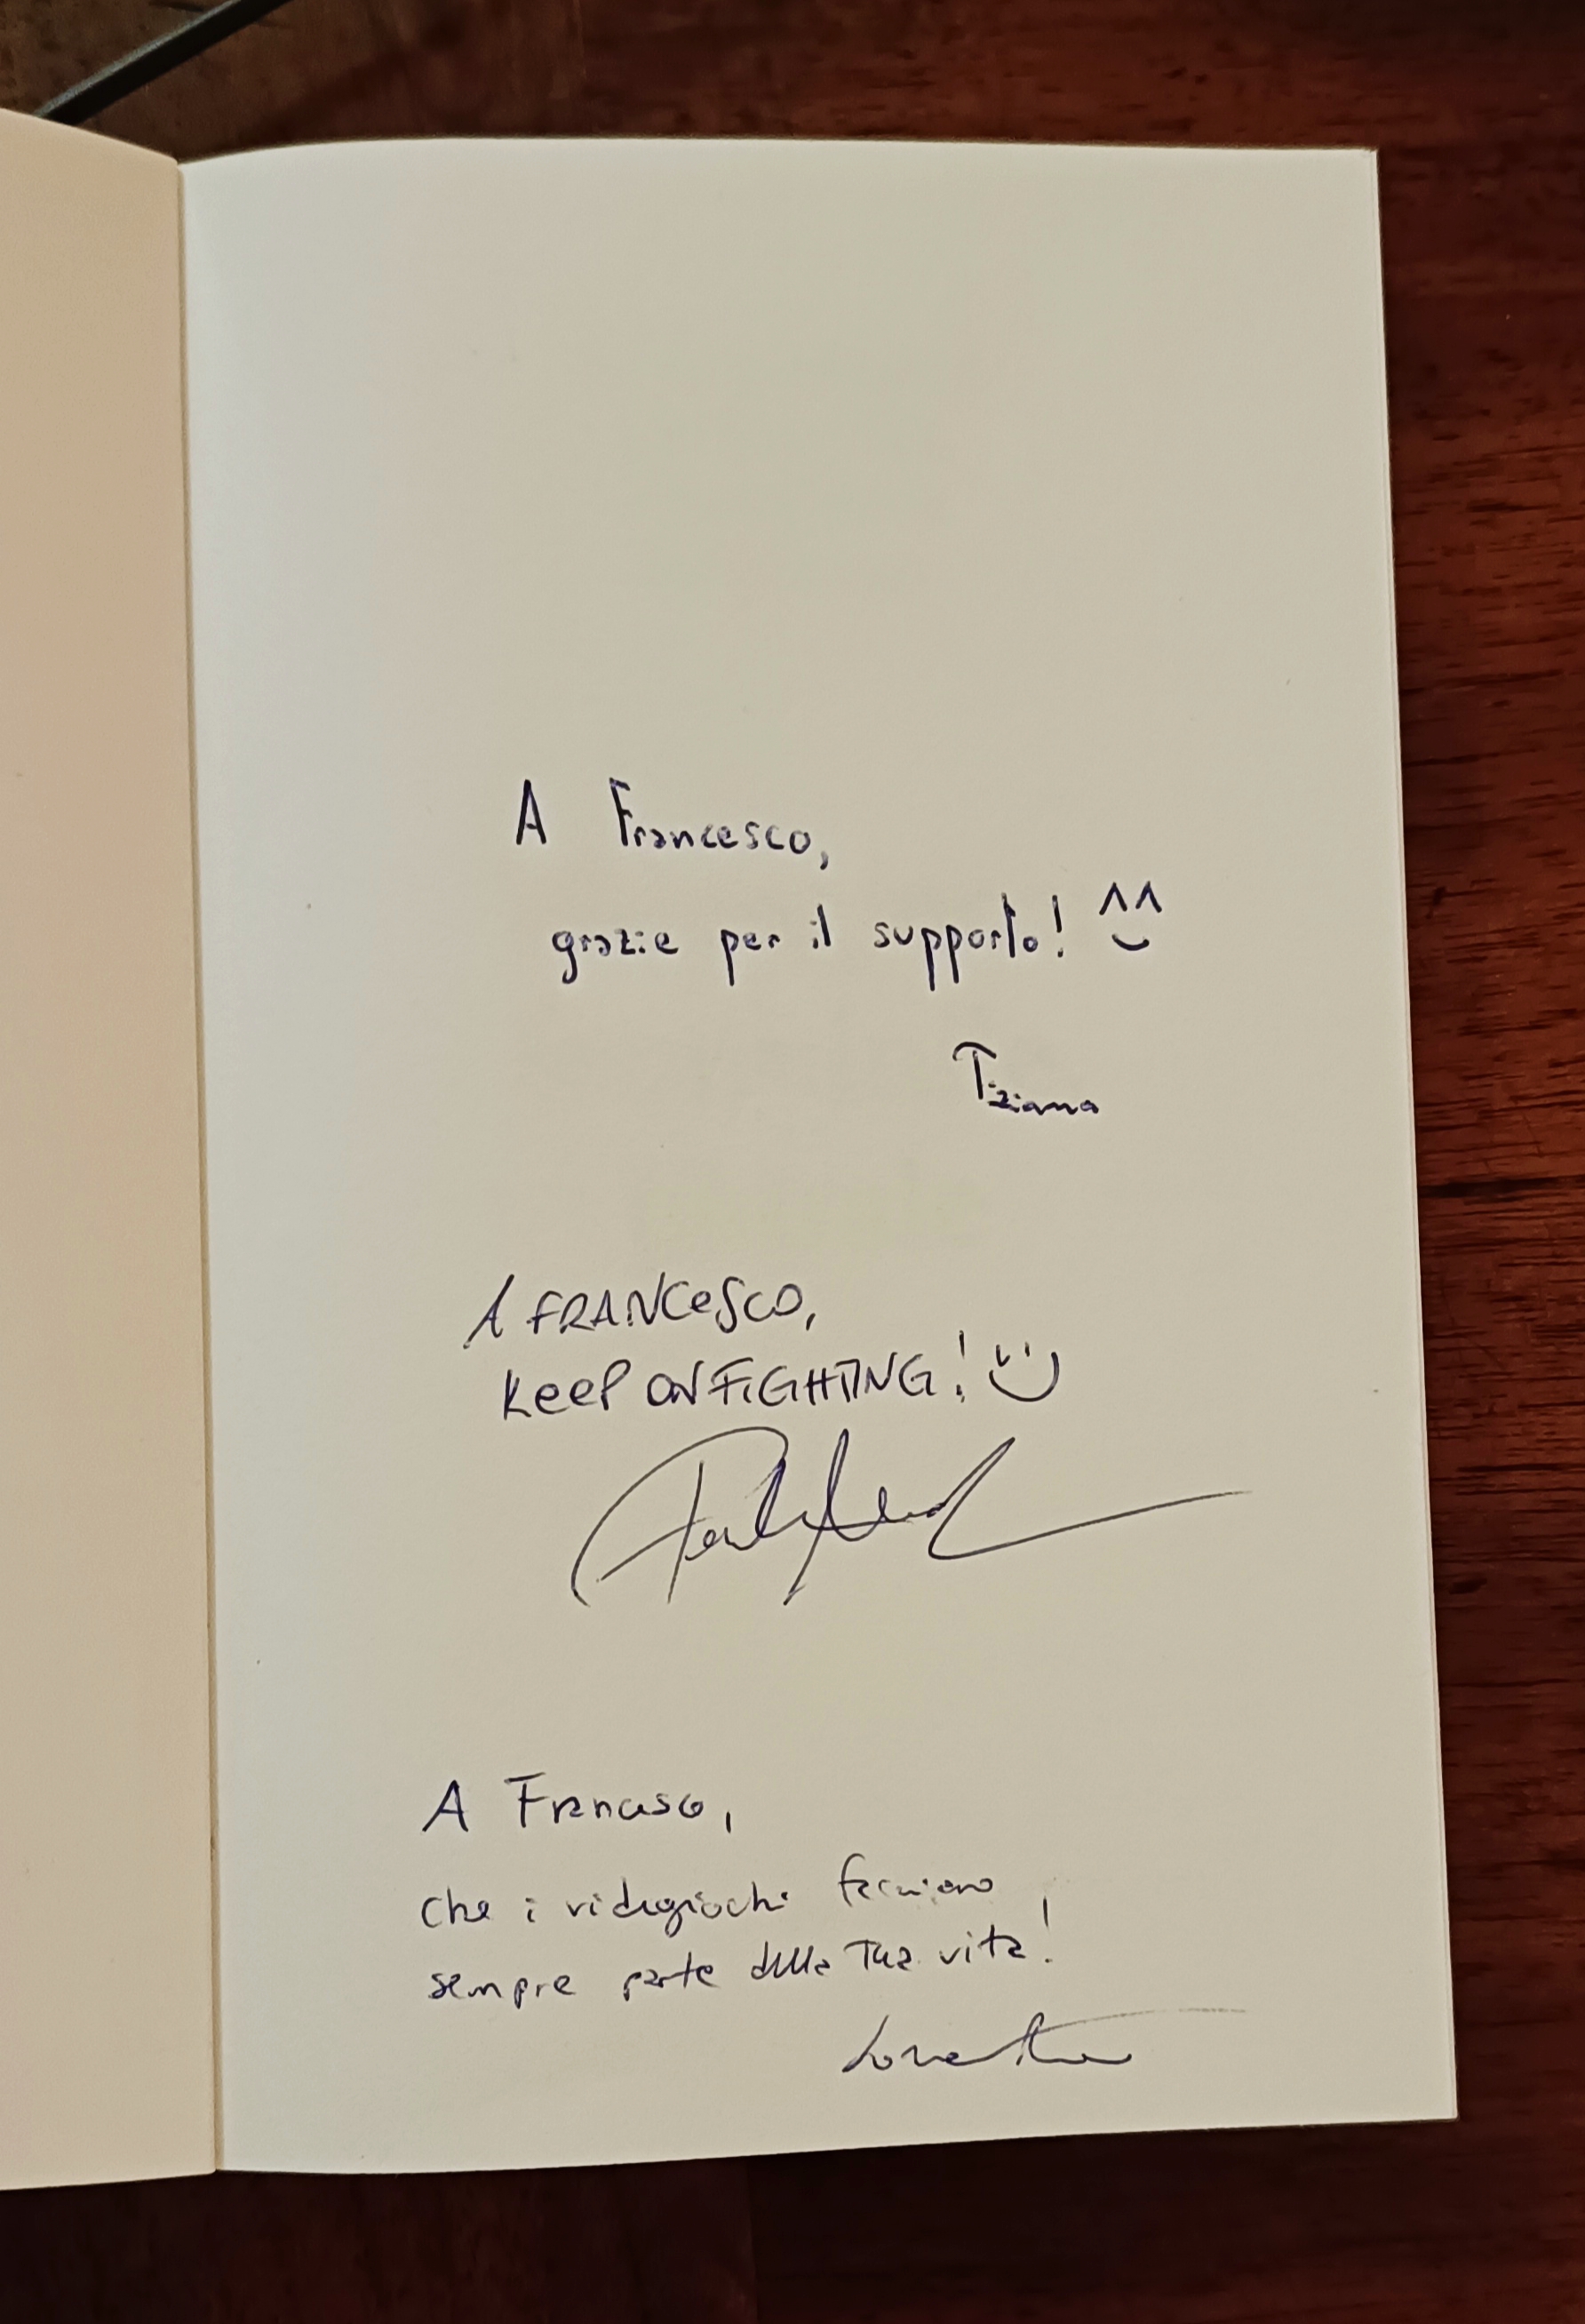 A Francesco,
grazie per il supporto! ^^
Tiziana
A FRANCESCO,
KEEP ON FIGHTING!
A Francesco,
che i videogiochi facciano
sempre parte della Tua vita!